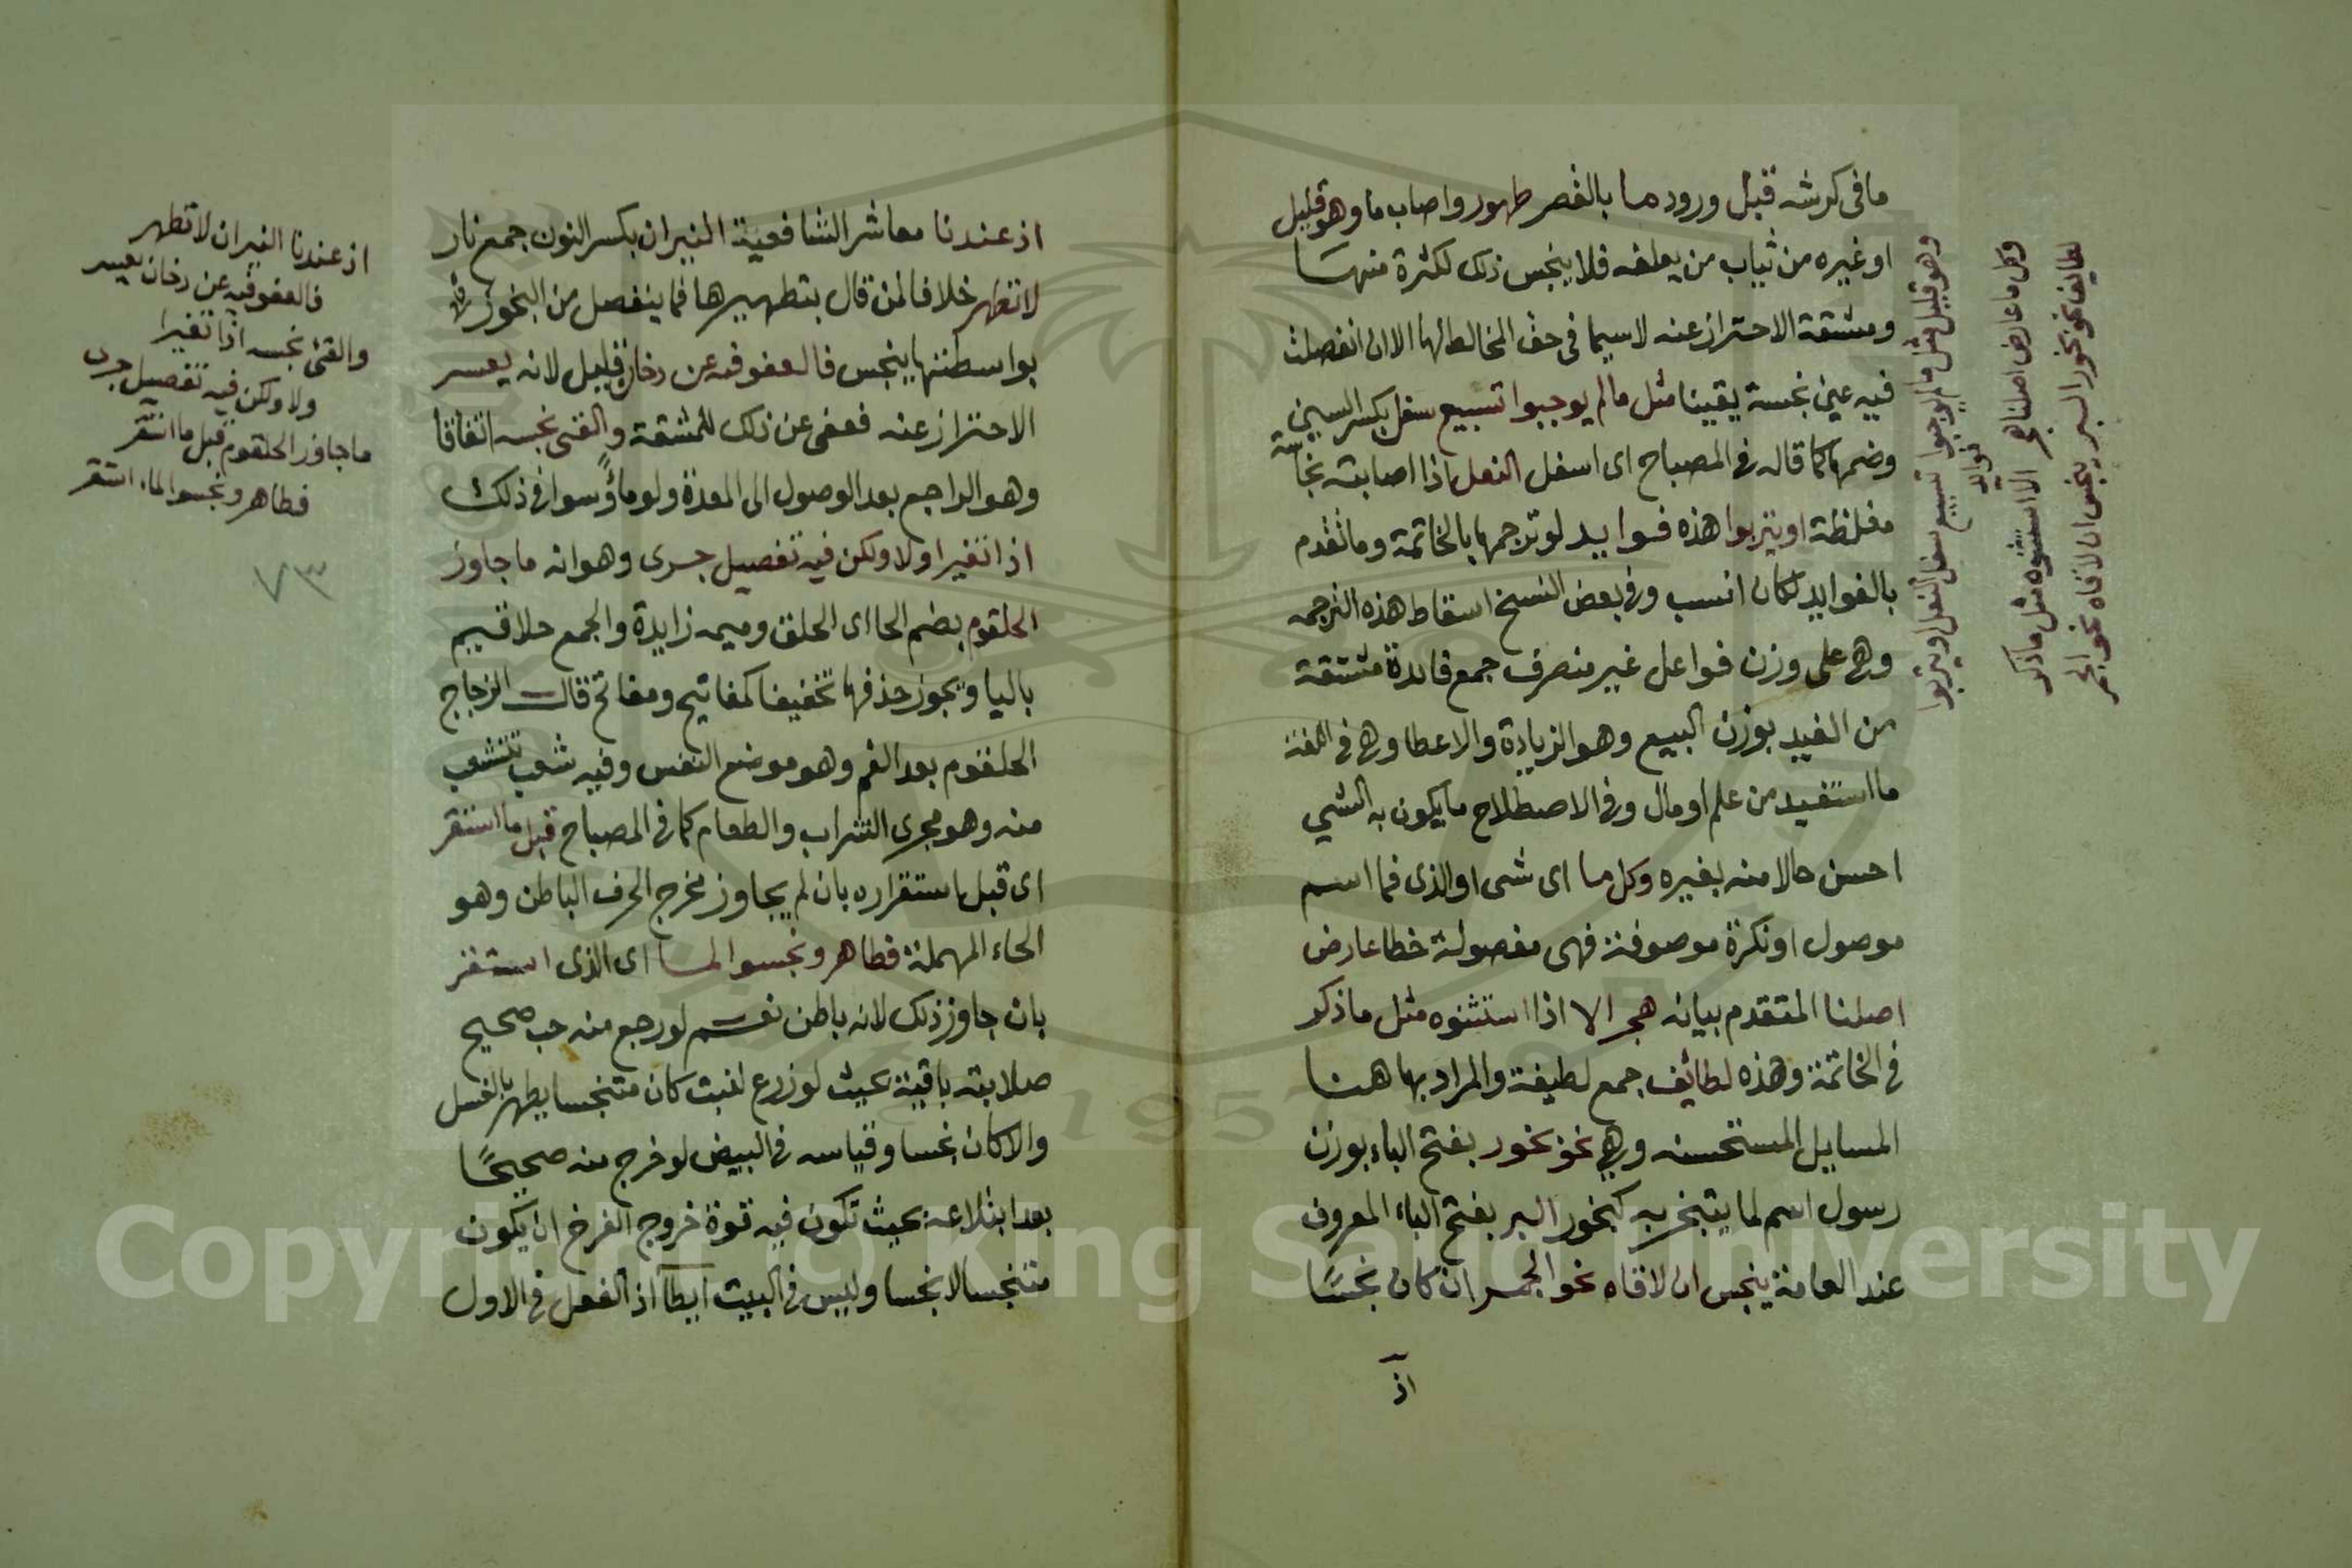 مافى كرشه قبل ورود ما بالقصر طهور واصاب ما وهو قليل
اوغيره من ثياب من يعلفه فلا ينجس ذلك لكثرة منهسا
ومشقة الاحتراز عنه لاسيما فى حق المخالط لها الا ان انفصلت
فيه عين نجسة يقينا مثل ما لم يوجبوا تسبيع سفل بكسر السين
وضمها كما قاله فى المصباح اى اسفل النعل اذا اصابته نجاسة
مغلظة اويتربوا هذه فوايد لو ترجمها بالخاتمة وما تقدم
بالفوايد لكان انسب وفى بعض النسخ اسقاط هذه الترجمه
وهى على وزن فواعل غير منصرف جمع فائدة مشتقة
من الفيد بوزن البيع وهو الزيادة والاعطا وهى فى اللغة
ما استفيد من علم او مال وفى الاصطلاح ما يكون به الشي
احسن حالا منه بغيره وكل ما اى شى او الذى فما اسم
موصول او نكرة موصوفة فهى مفصولة خطا عارض
اصلنا المتقدم بيانه هجر الا اذا استثنوه مثل ما ذكر
فى الخاتمة وهذه لطائف جمع لطيفة والمراد بها هنا
المسايل المستحسنه وهي نحو بخور بفتح الباء بوزن
رسول اسم لما يتبخر به كبخور البر بفتح الباء المعروف
عند العامة ينجس ان لاقاه نحو الجمر ان كان نجسًا
اذ
وهو قليل مثل مالم يوجبوا تسبيع سفل النعل اويتربوا
فوايد
وكل ما عارض اصلنا هجر الا استثنوه مثل ماذكر
لطايف نحو بخور البر ينجس ان لاقاه نحو الجمر
اذ عندنا معاشر الشافعية النيران بكسر النون جمع نار
لا تطهر خلافا لمن قال بتطهيرها فما ينفصل من البخور
بواسطتها ينجس فالعفو فيه عن دخان قليل لانه يعسر
الاحتراز عنه فعفى عن ذلك للمشقة والقئ نجسه اتفاقا
وهو الراجع بعد الوصول الى المعدة ولو ماؤسوا فى ذلك
اذا تغيرا ولا ولكن فيه تفصيل جرى وهو انه ما جاوز
الحلقوم بضم الحا اى الحلق وميمه زايدة والجمع حلاقيم
باليا ويجوز حذفها تخفيفا كمفاتيح ومفاتح قال الزجاج
الحلقوم بعد الفم وهو موضع النفس وفيه شعب تتشعب
منه وهو مجرى الشراب والطعام كما فى المصباح قبل ما استقر
اى قبل استقراره بان لم يجاوز مخرج الحرف الباطن وهو
الحاء المهملة فطاهر ونجسوا لما اى الذى استقر
بان جاوز ذلك لانه باطن نعم لو رجع منه حب صحيح
صلابته باقية بحيث لو زرع لنبت كان متنجسا يطهر بالغسل
والا كان نجسا وقياسه فى البيض لو خرج منه صحيحًا
بعد ابتلاعه بحيث تكون فيه قوة خروج الفرخ ان يكون
متنجسا لا نجسا وليس فى البيت ايطآ اذ الفعل فى الاول
اذ عندنا النيران لا تطهر
فالعفو فيه عن دخان يعسر
والقئ نجسه اذا تغيرا
ولا ولكن فيه تفصيل جرى
ماجاوز الحلقوم قبل ما استقر
فطاهر ونجسوا لما استقر
٧٣
1957
Copyright © King Saud University